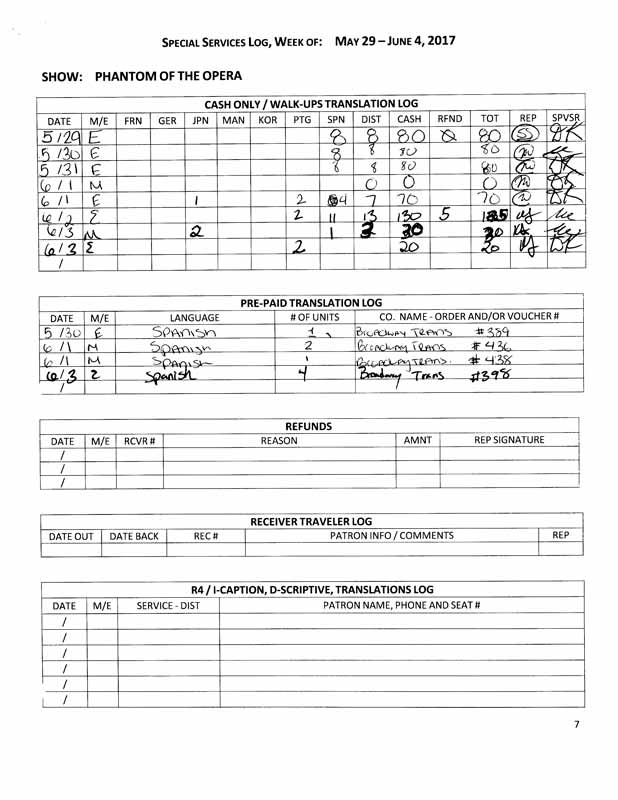 SPECIAL SERVICES LOG, WEEK OF: MAY 29 – JUNE 4, 2017
SHOW: PHANTOM OF THE OPERA
CASH ONLY / WALK-UPS TRANSLATION LOG
DATE M/E FRN GER JPN MAN KOR PTG SPN DIST CASH RFND TOT REP SPVSR
5/29 E 8 8 80 0 80 SS DK
5/30 E 8 8 80 80
5/31 E 8 8 80 80 DK
6/1 M 0 0 0 DK
6/1 E 1 2 4 7 70 70 DK
6/2 E 2 11 13 130 5 125
6/3 M 2 1 3 30 30
6/3 E 2 20 20 DK
/
PRE-PAID TRANSLATION LOG
DATE M/E LANGUAGE # OF UNITS CO. NAME - ORDER AND/OR VOUCHER #
5/30 E SPANISH 1 BROADWAY TRANS #389
6/1 M SPANISH 2 BROADWAY TRANS #436
6/1 M SPANISH 1 BROADWAY TRANS. #438
6/3 E Spanish 4 Broadway Trans #398
/
REFUNDS
DATE M/E RCVR # REASON AMNT REP SIGNATURE
/
/
/
RECEIVER TRAVELER LOG
DATE OUT DATE BACK REC # PATRON INFO / COMMENTS REP
R4 / I-CAPTION, D-SCRIPTIVE, TRANSLATIONS LOG
DATE M/E SERVICE - DIST PATRON NAME, PHONE AND SEAT #
/
/
/
/
/
/
7